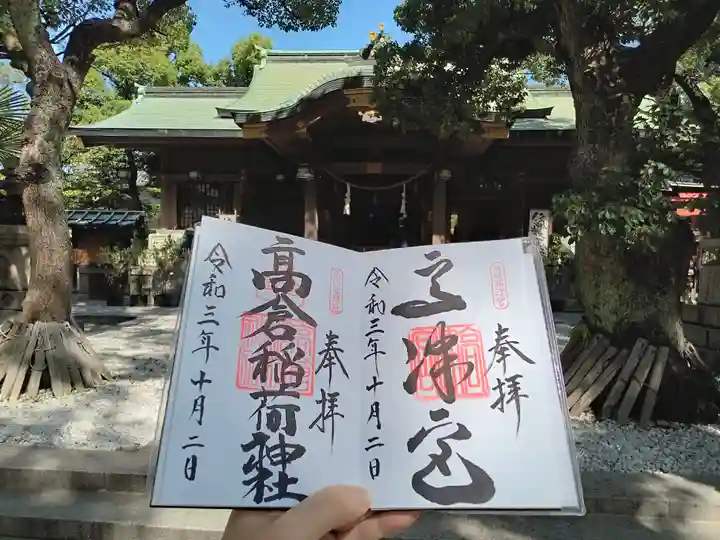 奉拝
高津宮
令和三年十月二日
奉拝
高倉稲荷神社
令和三年十月二日